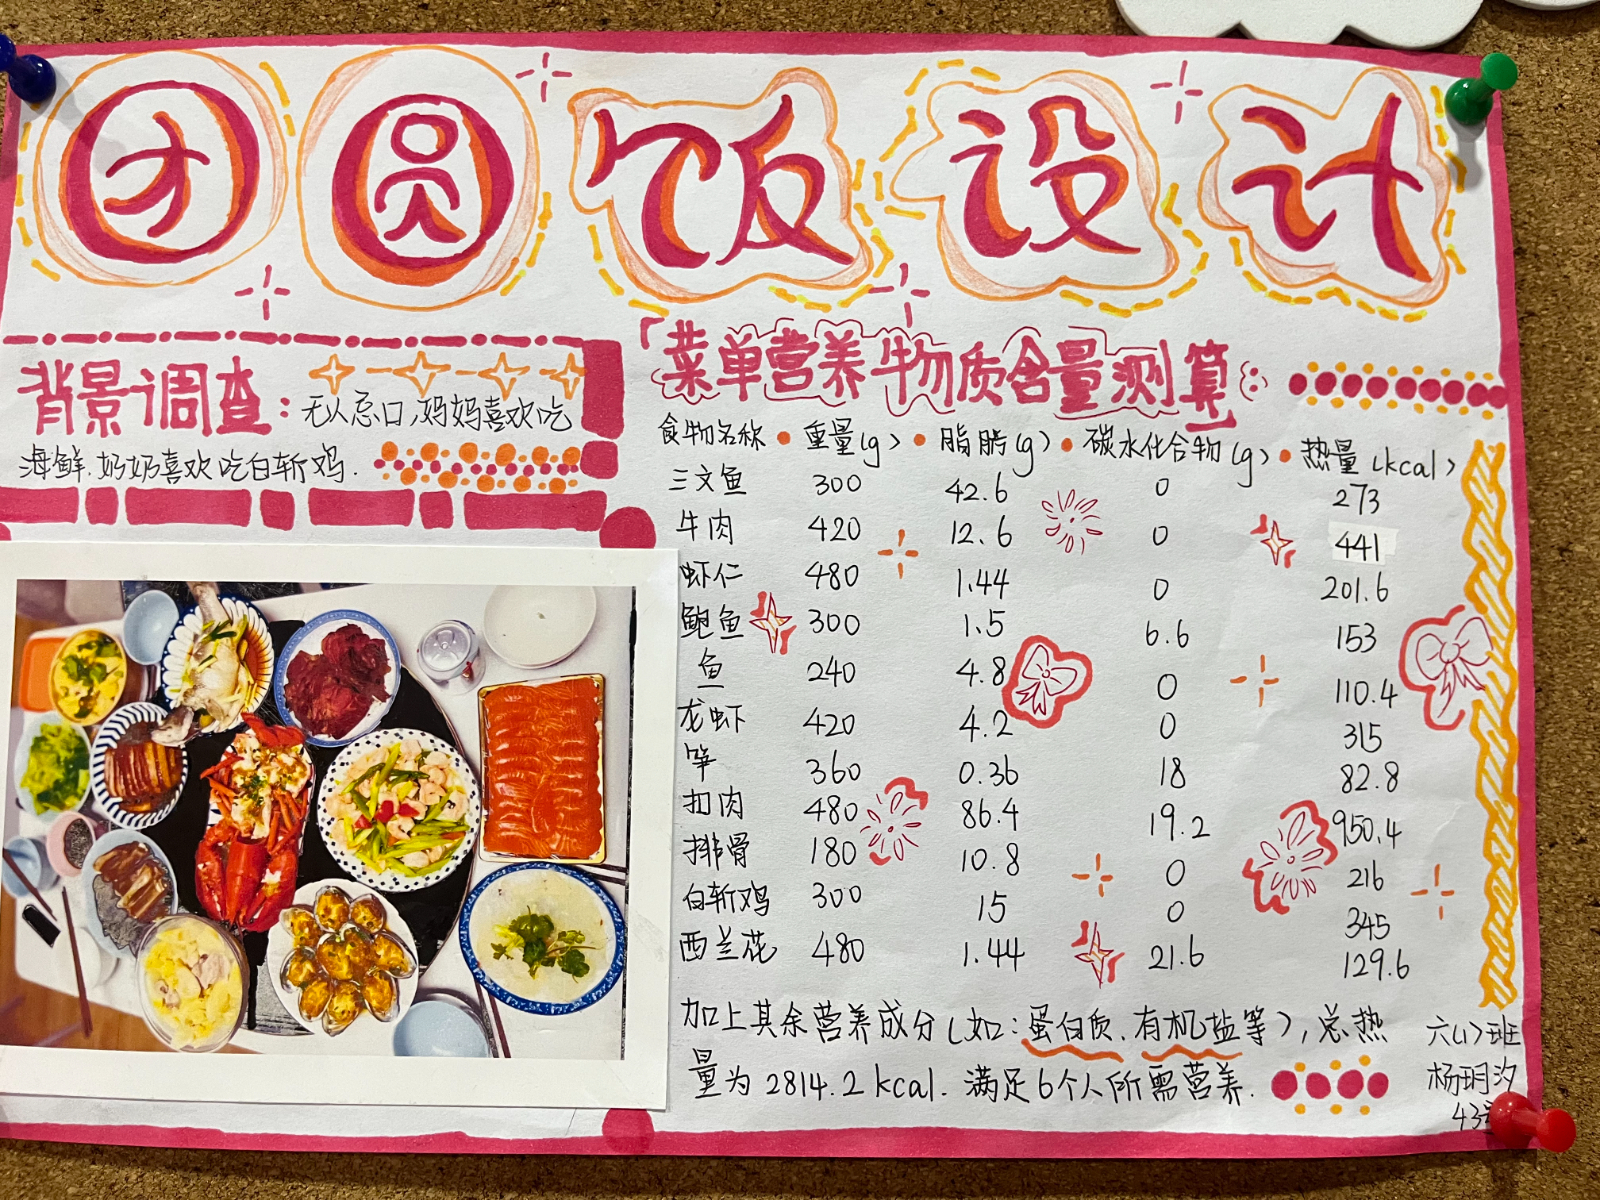 团圆饭设计
背景调查：无人忌口,妈妈喜欢吃
海鲜.奶奶喜欢吃白斩鸡.
「菜单营养物质含量测算」
食物名称 • 重量(g) • 脂肪(g) • 碳水化合物(g) • 热量(kcal)
三文鱼 300 42.6 0 273
牛肉 420 12.6 0 441
虾仁 480 1.44 0 201.6
鲍鱼 300 1.5 6.6 153
鱼 240 4.8 0 110.4
龙虾 420 4.2 0 315
笋 360 0.36 18 82.8
扣肉 480 86.4 19.2 950.4
排骨 180 10.8 0 216
白斩鸡 300 15 0 345
西兰花 480 1.44 21.6 129.6
加上其余营养成分(如:蛋白质.有机盐等),总热
量为2814.2kcal.满足6个人所需营养.
六(1)班
杨玥汐
43